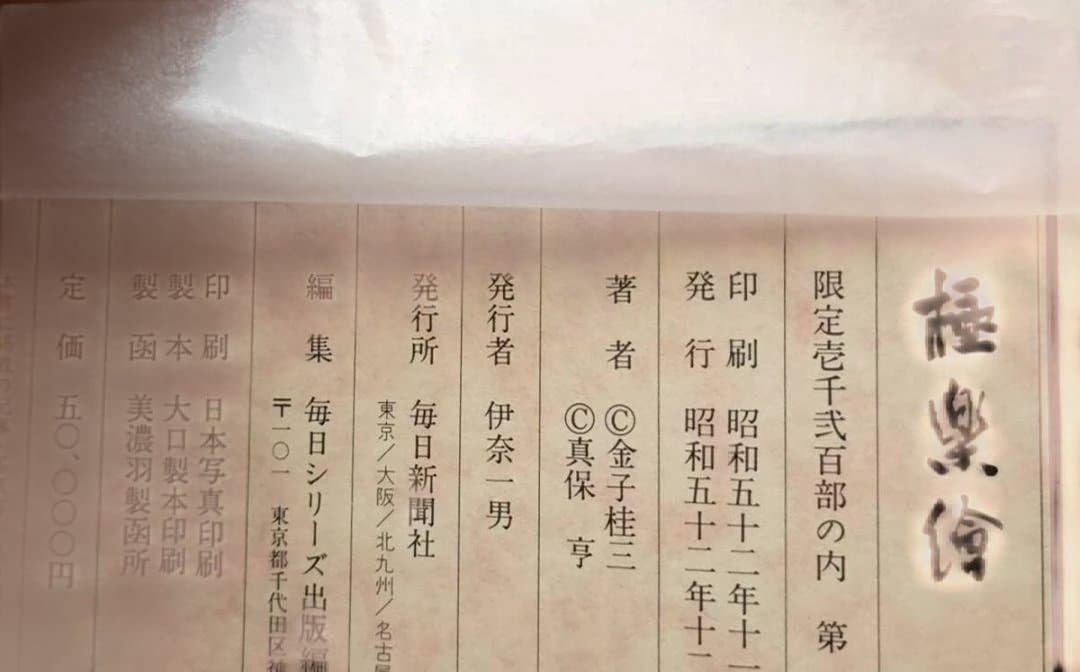 極楽繪
限定壱千弐百部の内 第
印刷 昭和五十二年十一
発行 昭和五十二年十
著者 ©金子桂三
©真保 亨
発行者 伊奈一男
発行所 毎日新聞社
東京／大阪／北九州／名古屋
編集 毎日シリーズ出版編
〒一〇一 東京都千代田区
印刷 日本写真印刷
製本 大口製本印刷
製函 美濃羽製函所
定価 五〇、〇〇〇円